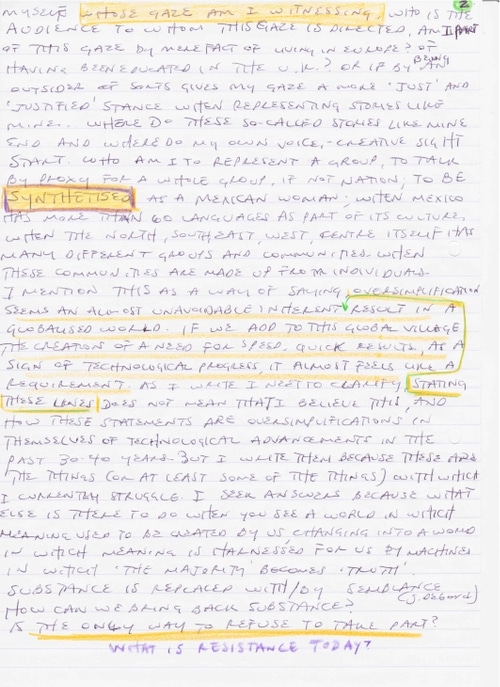 2
MYSELF WHOSE GAZE AM I WITNESSING, WHO IS THE
AUDIENCE TO WHOM THIS GAZE IS DIRECTED, AM I PART
OF THIS GAZE BY MERE FACT OF LIVING IN EUROPE? OF
HAVING BEEN EDUCATED IN THE U.K.? OR IF BY BEING AN
OUTSIDER OF SORTS GIVES MY GAZE A MORE 'JUST' AND
'JUSTIFIED' STANCE WHEN REPRESENTING STORIES LIKE
MINE. WHERE DO THESE SO-CALLED STORIES LIKE MINE
END AND WHERE DO MY OWN VOICE, CREATIVE SIGHT
START. WHO AM I TO REPRESENT A GROUP, TO TALK
BY PROXY FOR A WHOLE GROUP, IF NOT NATION, TO BE
SYNTHETISED AS A MEXICAN WOMAN; WHEN MEXICO
HAS MORE THAN 60 LANGUAGES AS PART OF ITS CULTURE,
WHEN THE NORTH, SOUTH, EAST, WEST, CENTRE ITSELF HAS
MANY DIFFERENT GROUPS AND COMMUNITIES. WHEN
THESE COMMUNITIES ARE MADE UP FROM INDIVIDUALS.
I MENTION THIS AS A WAY OF SAYING, OVERSIMPLIFICATION
SEEMS AN ALMOST UNAVOIDABLE INHERENT RESULT IN A
GLOBALISED WORLD. IF WE ADD TO THIS GLOBAL VILLAGE
THE CREATION OF A NEED FOR SPEED, QUICK RESULTS, AS A
SIGN OF TECHNOLOGICAL PROGRESS, IT ALMOST FEELS LIKE A
REQUIREMENT. AS I WRITE I NEED TO CLARIFY, STATING
THESE LINES DOES NOT MEAN THAT I BELIEVE THIS, AND
HOW THESE STATEMENTS ARE OVERSIMPLIFICATIONS IN
THEMSELVES OF TECHNOLOGICAL ADVANCEMENTS IN THE
PAST 30-40 YEARS. BUT I WRITE THEM BECAUSE THESE ARE
THE THINGS (OR AT LEAST SOME OF THE THINGS) WITH WHICH
I CURRENTLY STRUGGLE. I SEEK ANSWERS BECAUSE WHAT
ELSE IS THERE TO DO WHEN YOU SEE A WORLD IN WHICH
MEANING USED TO BE CREATED BY US, CHANGING INTO A WORLD
IN WHICH MEANING IS HARNESSED FOR US BY MACHINES
IN WHICH 'THE MAJORITY' BECOMES 'TRUTH'.
SUBSTANCE IS REPLACED WITH/BY SEMBLANCE
HOW CAN WE BRING BACK SUBSTANCE? (J. DEBORD)
IS THE ONLY WAY TO REFUSE TO TAKE PART?
WHAT IS RESISTANCE TODAY?